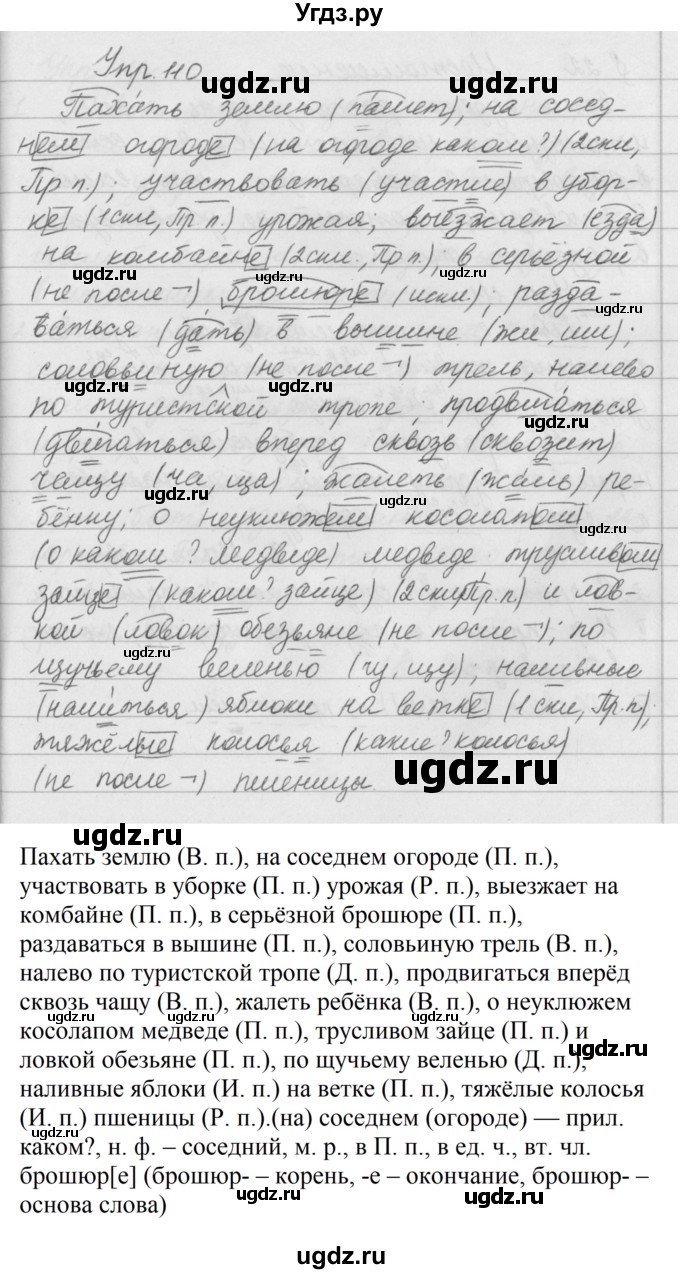 Угдз.ру
Упр. 110
Пахать землю (пашет); на сосед-
нем огороде (на огороде каком?) (2скл,
Пр п.); участвовать (участие) в убор-
ке (1скл, Пр п.) урожая; выезжает (езда)
на комбайне (2скл., Пр п.); в серьёзной
(не после ¬) брошюре (искл.); разда-
ваться (дать) в вышине (жи, ши);
соловьиную (не после ¬) трель, налево
по туристской тропе; продвигаться
(двигаться) вперед сквозь (сквозит)
чащу (ча, ща); жалеть (жаль) ре-
бёнку; о неуклюжем косолапом
(о каком? медведе) медведе трусливом
зайце (каком? зайце) (2скл, Пр. п.) и лов-
кой (ловок) обезьяне (не после ¬); по
щучьему веленью (чу, щу); наливные
(налиться) яблоки на ветке (1 скл, Пр. п.);
тяжёлые колосья (какие? колосья)
(не после ¬) пшеницы.
Пахать землю (В. п.), на соседнем огороде (П. п.),
участвовать в уборке (П. п.) урожая (Р. п.), выезжает на
комбайне (П. п.), в серьёзной брошюре (П. п.),
раздаваться в вышине (П. п.), соловьиную трель (В. п.),
налево по туристской тропе (Д. п.), продвигаться вперёд
сквозь чащу (В. п.), жалеть ребёнка (В. п.), о неуклюжем
косолапом медведе (П. п.), трусливом зайце (П. п.) и
ловкой обезьяне (П. п.), по щучьему веленью (Д. п.),
наливные яблоки (И. п.) на ветке (П. п.), тяжёлые колосья
(И. п.) пшеницы (Р. п.).(на) соседнем (огороде) — прил.
каком?, н. ф. – соседний, м. р., в П. п., в ед. ч., вт. чл.
брошюр[е] (брошюр- – корень, -е – окончание, брошюр- –
основа слова)
ugdz.ru